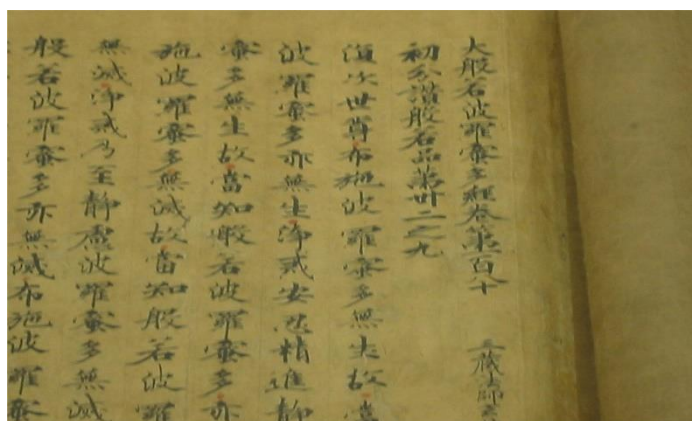 大般若波羅蜜多經卷第一百八十
初分讚般若品第卅二之九
三藏法師
復次世尊布施波羅蜜多無生故當
波羅蜜多亦無生淨戒安忍精進靜
蜜多無生故當知般若波羅蜜多亦
施波羅蜜多無滅故當知般若波羅
無滅淨戒乃至靜慮波羅蜜多無滅
般若波羅蜜多亦無滅布施波羅蜜